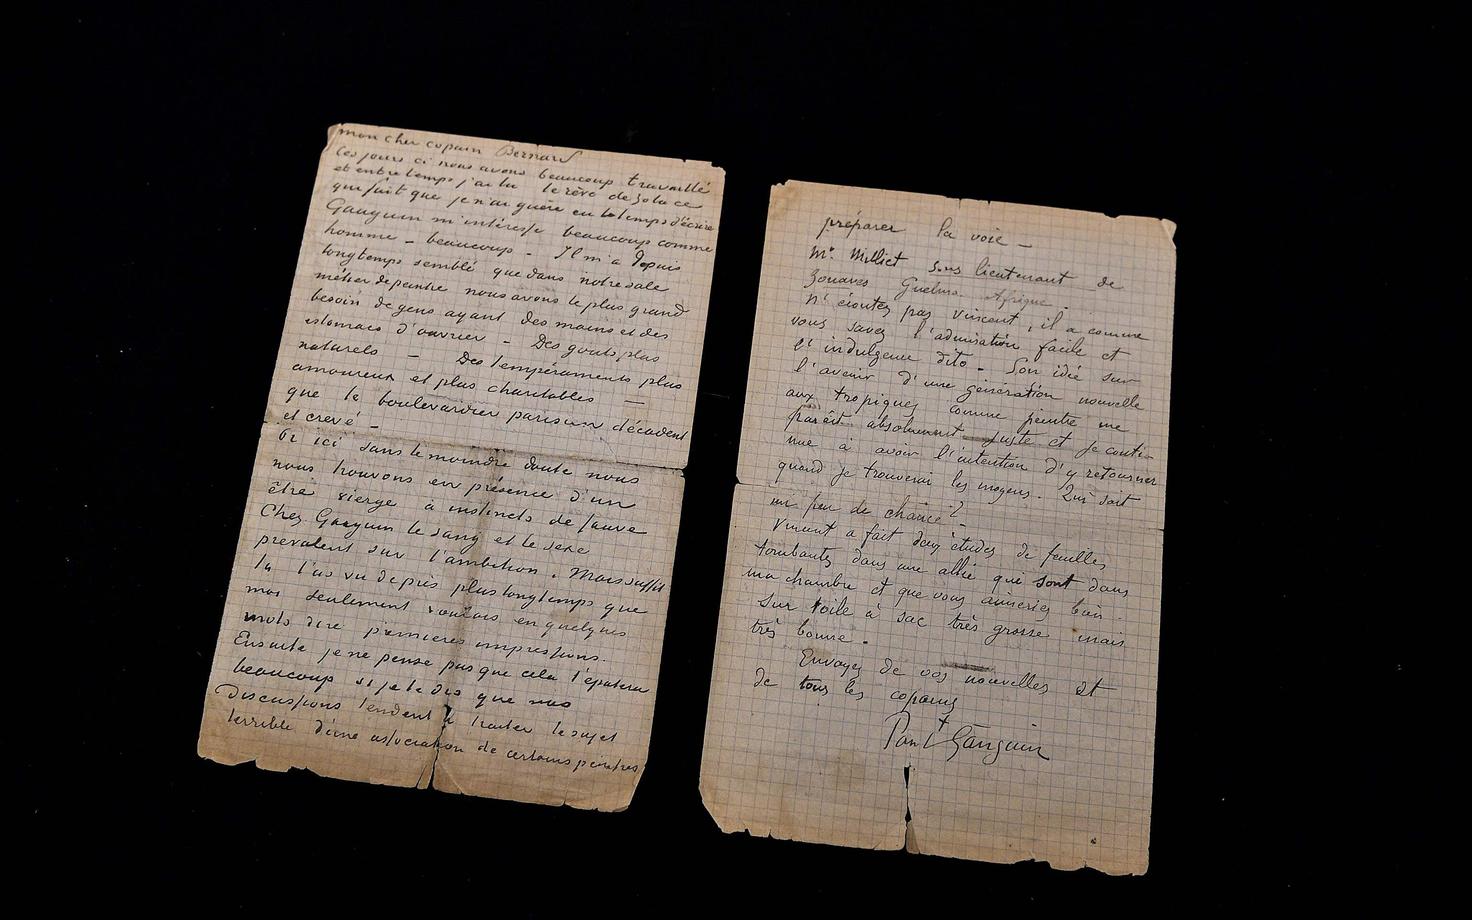 mon cher copain Bernard
Ces jours ci nous avons beaucoup travaillé
et entre temps j'ai lu le rêve de Zola ce
qui fait que je n'ai guère eu le temps d'écrire
Gauguin m'intéresse beaucoup comme
homme – beaucoup – Il m'a depuis
longtemps semblé que dans notre sale
métier de peintre nous avons le plus grand
besoin de gens ayant des mains et des
estomacs d'ouvrier – Des gouts plus
naturels – Des tempéraments plus
amoureux et plus charitables –
que le boulevardier parisien décadent
et crevé –
Or ici sans le moindre doute nous
nous trouvons en présence d'un
être vierge à instincts de fauve
Chez Gauguin le sang et le sexe
prevalent sur l'ambition. Mais suffit
tu l'as vu de près plus longtemps que
moi seulement voulais en quelques
mots dire premieres impressions.
Ensuite je ne pense pas que cela t'épatera
beaucoup si je te dis que nos
discussions tendent à traiter le sujet
terrible d'une association de certains peintres
préparer la voie –
Mr. Milliet sous lieutenant de
Zouaves Guelma Afrique.
N'écoutez pas Vincent, il a comme
vous savez l'admiration facile et
l'indulgence dito – Son idée sur
l'avenir d'une génération nouvelle
aux tropiques comme peintre me
paraît absolument juste et je conti-
nue à avoir l'intention d'y retourner
quand je trouverai les moyens. Qui sait
un peu de chance ? –
Vincent a fait deux études de feuilles
tombantes dans une allée qui sont dans
ma chambre et que vous aimeriez bien.
Sur toile à sac très grosse mais
très bonne.
Envoyez de vos nouvelles et
de tous les copains
Paul Gauguin